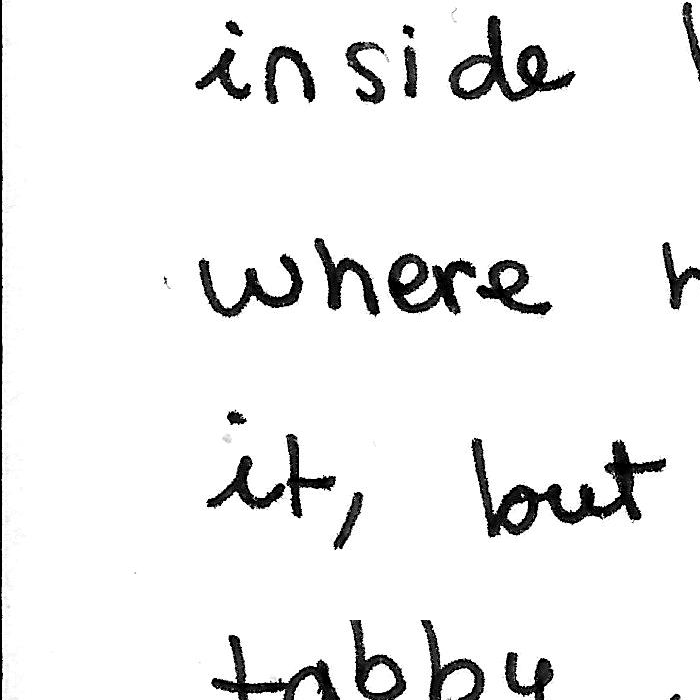 inside
where
it, but
tabby